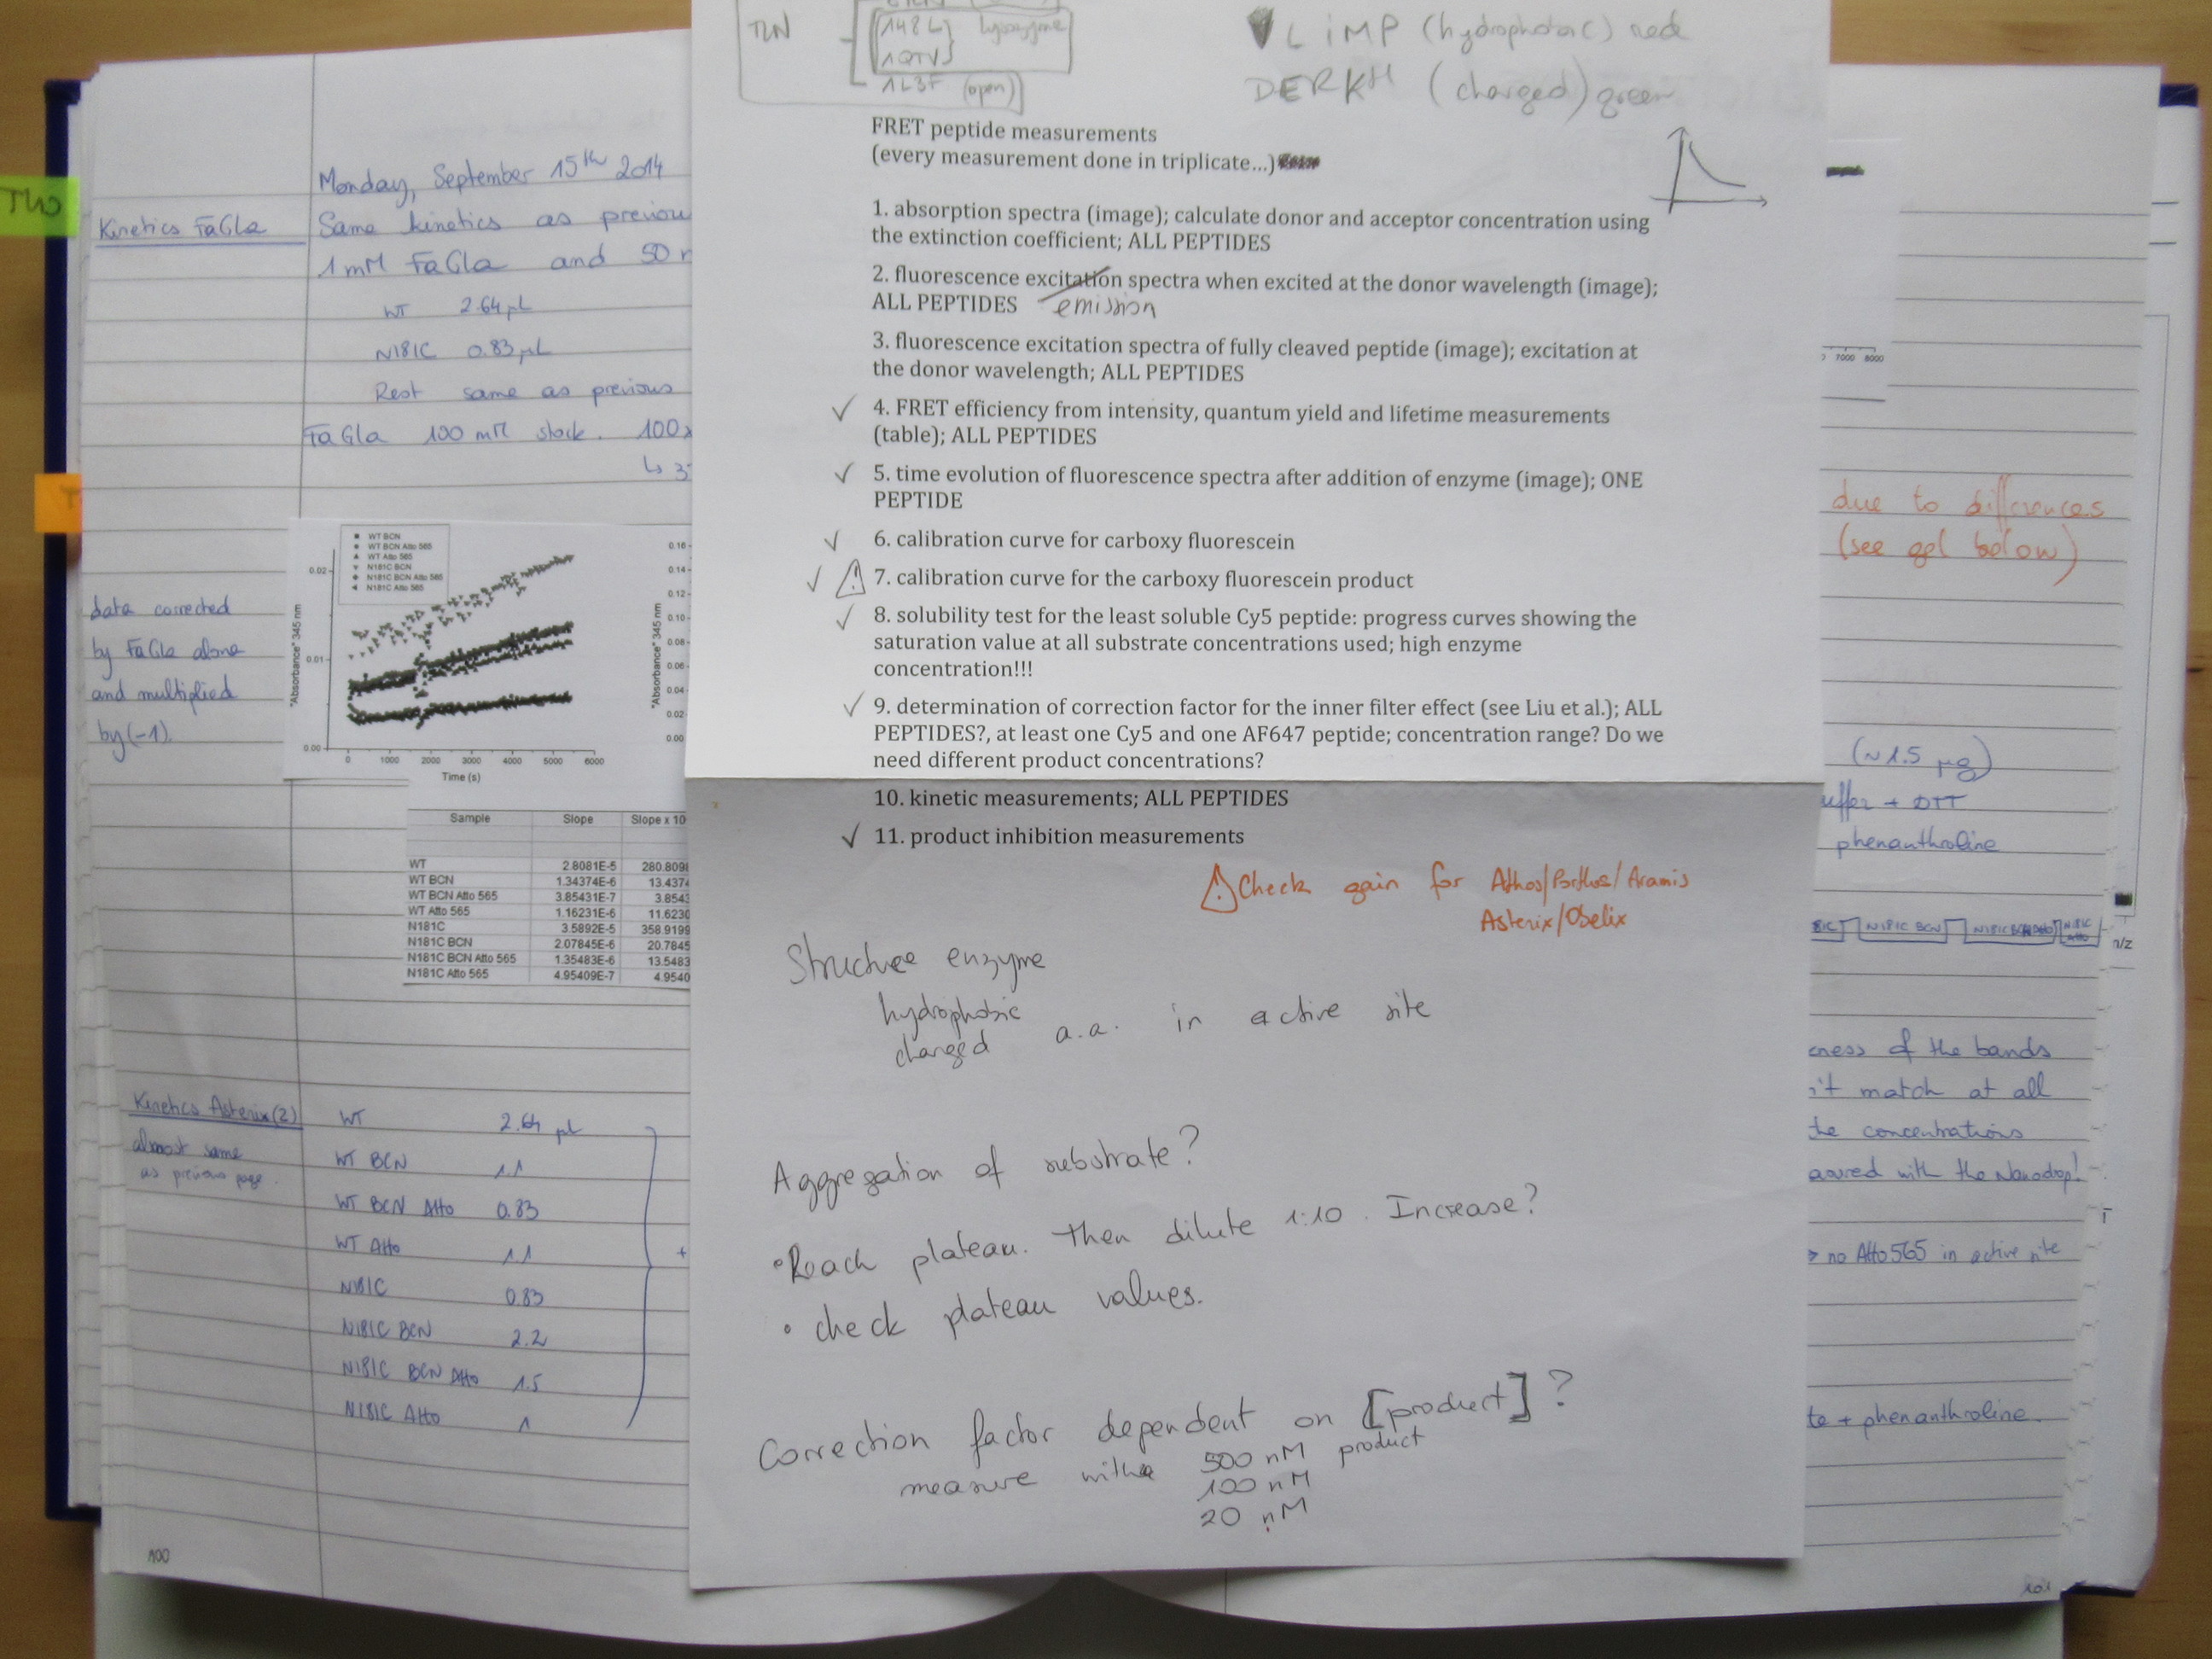 TLN
148L } lysozyme
1QTV }
1L3F (open)
LiMP (hydrophobic) red
DERKH (charged) green
FRET peptide measurements
(every measurement done in triplicate...)
1. absorption spectra (image); calculate donor and acceptor concentration using
the extinction coefficient; ALL PEPTIDES
2. fluorescence excitation spectra when excited at the donor wavelength (image);
ALL PEPTIDES
emission
3. fluorescence excitation spectra of fully cleaved peptide (image); excitation at
the donor wavelength; ALL PEPTIDES
✓ 4. FRET efficiency from intensity, quantum yield and lifetime measurements
(table); ALL PEPTIDES
✓ 5. time evolution of fluorescence spectra after addition of enzyme (image); ONE
PEPTIDE
✓ 6. calibration curve for carboxy fluorescein
✓ ⚠ 7. calibration curve for the carboxy fluorescein product
✓ 8. solubility test for the least soluble Cy5 peptide: progress curves showing the
saturation value at all substrate concentrations used; high enzyme
concentration!!!
✓ 9. determination of correction factor for the inner filter effect (see Liu et al.); ALL
PEPTIDES?, at least one Cy5 and one AF647 peptide; concentration range? Do we
need different product concentrations?
10. kinetic measurements; ALL PEPTIDES
✓ 11. product inhibition measurements
⚠ Check gain for Athos/Porthos/Aramis
Asterix/Obelix
Structure enzyme
hydrophobic
charged a.a. in active site
Aggregation of substrate?
• Reach plateau. Then dilute 1:10. Increase?
• check plateau values.
Correction factor dependent on [product]?
measure with 500 nM product
100 nM
20 nM
Monday, September 15th 2014
Kinetics FaGla
Same kinetics as previou
1 mM FaGla and 50 n
WT 2.64 µL
N181C 0.83 µL
Rest same as previous
FaGla 100 mM stock. 100x
↳ 3
data corrected
by FaGla alone
and multiplied
by (-1).
WT BCN
WT BCN Atto 565
WT Atto 565
N181C BCN
N181C BCN Atto 565
N181C Atto 565
"Absorbance" 345 nm
0.02
0.01
0.00
0 1000 2000 3000 4000 5000 6000
Time (s)
"Absorbance" 345 nm
0.16
0.14
0.12
0.10
0.08
0.06
0.04
0.02
0.00
Sample Slope Slope x 10
WT 2.8081E-5 280.809
WT BCN 1.34374E-6 13.437
WT BCN Atto 565 3.85431E-7 3.854
WT Atto 565 1.16231E-6 11.623
N181C 3.5892E-5 358.919
N181C BCN 2.07845E-6 20.7845
N181C BCN Atto 565 1.35483E-6 13.5483
N181C Atto 565 4.95409E-7 4.9540
Kinetics Asterix (2)
almost same
as previous page.
WT 2.64 µL
WT BCN 1.1
WT BCN Atto 0.83
WT Atto 1.1
N181C 0.83
N181C BCN 2.2
N181C BCN Atto 1.5
N181C Atto 1
+
100
7000 8000
due to differences
(see gel below)
(~1.5 µg)
uffer + DTT
phenanthroline
81C N181C BCN N181C BCN Atto N181C Atto
n/z
ness of the bands
't match at all
the concentrations
asured with the Nanodrop!
> no Atto565 in active site
te + phenanthroline.
101